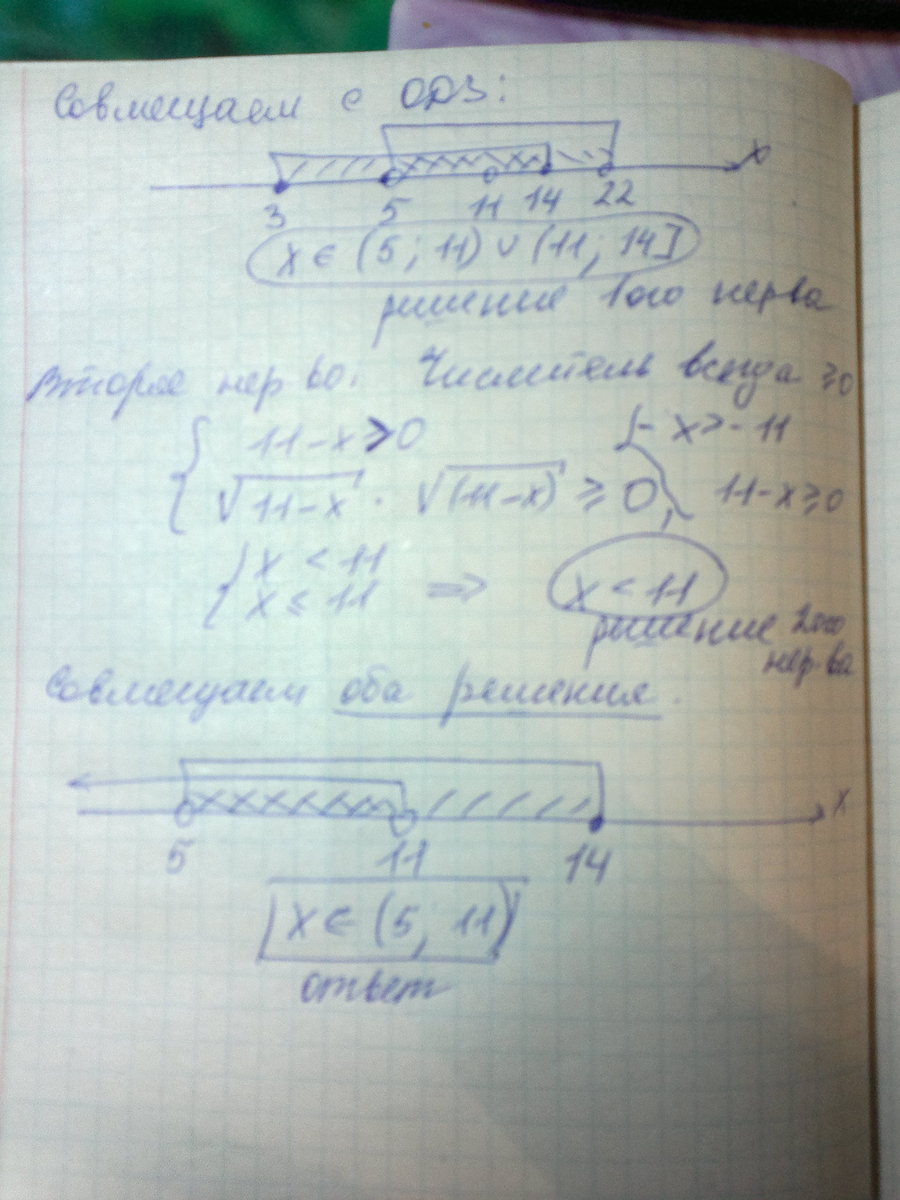 Совмещаем с ОДЗ:
x
3 5 11 14 22
x ∈ (5; 11) ∪ (11; 14]
решение 1ого нер-ва
Второе нер-во. Числитель всегда ≥0
11-x > 0 - x > - 11
√11-x · √(11-x) ≥ 0 11-x≥0
x < 11
x ≤ 11 ⇒ x < 11
решение 2ого
нер-ва
Совмещаем оба решения.
x
5 11 14
x ∈ (5; 11)
ответ